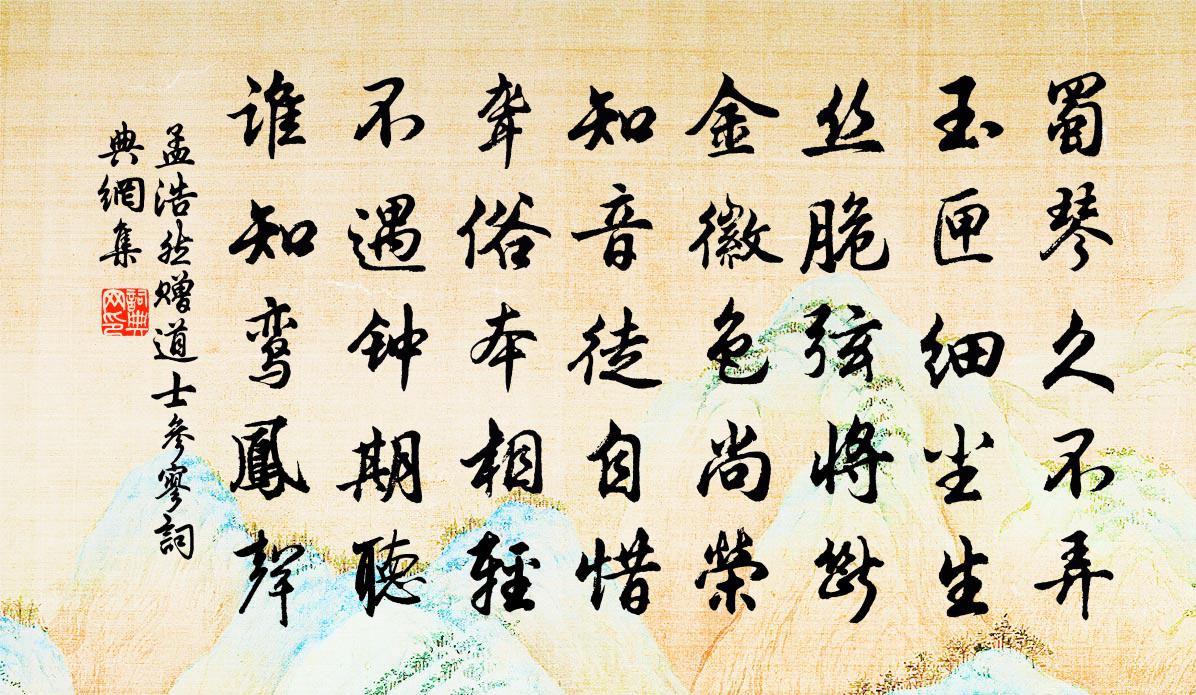 蜀琴久不弄
玉匣细尘生
丝脆弦将断
金徽色尚榮
知音徒自惜
聋俗本相輕
不遇钟期聽
谁知鸾鳳聲
孟浩然赠道士参寥詞
典網集
詞典
网印